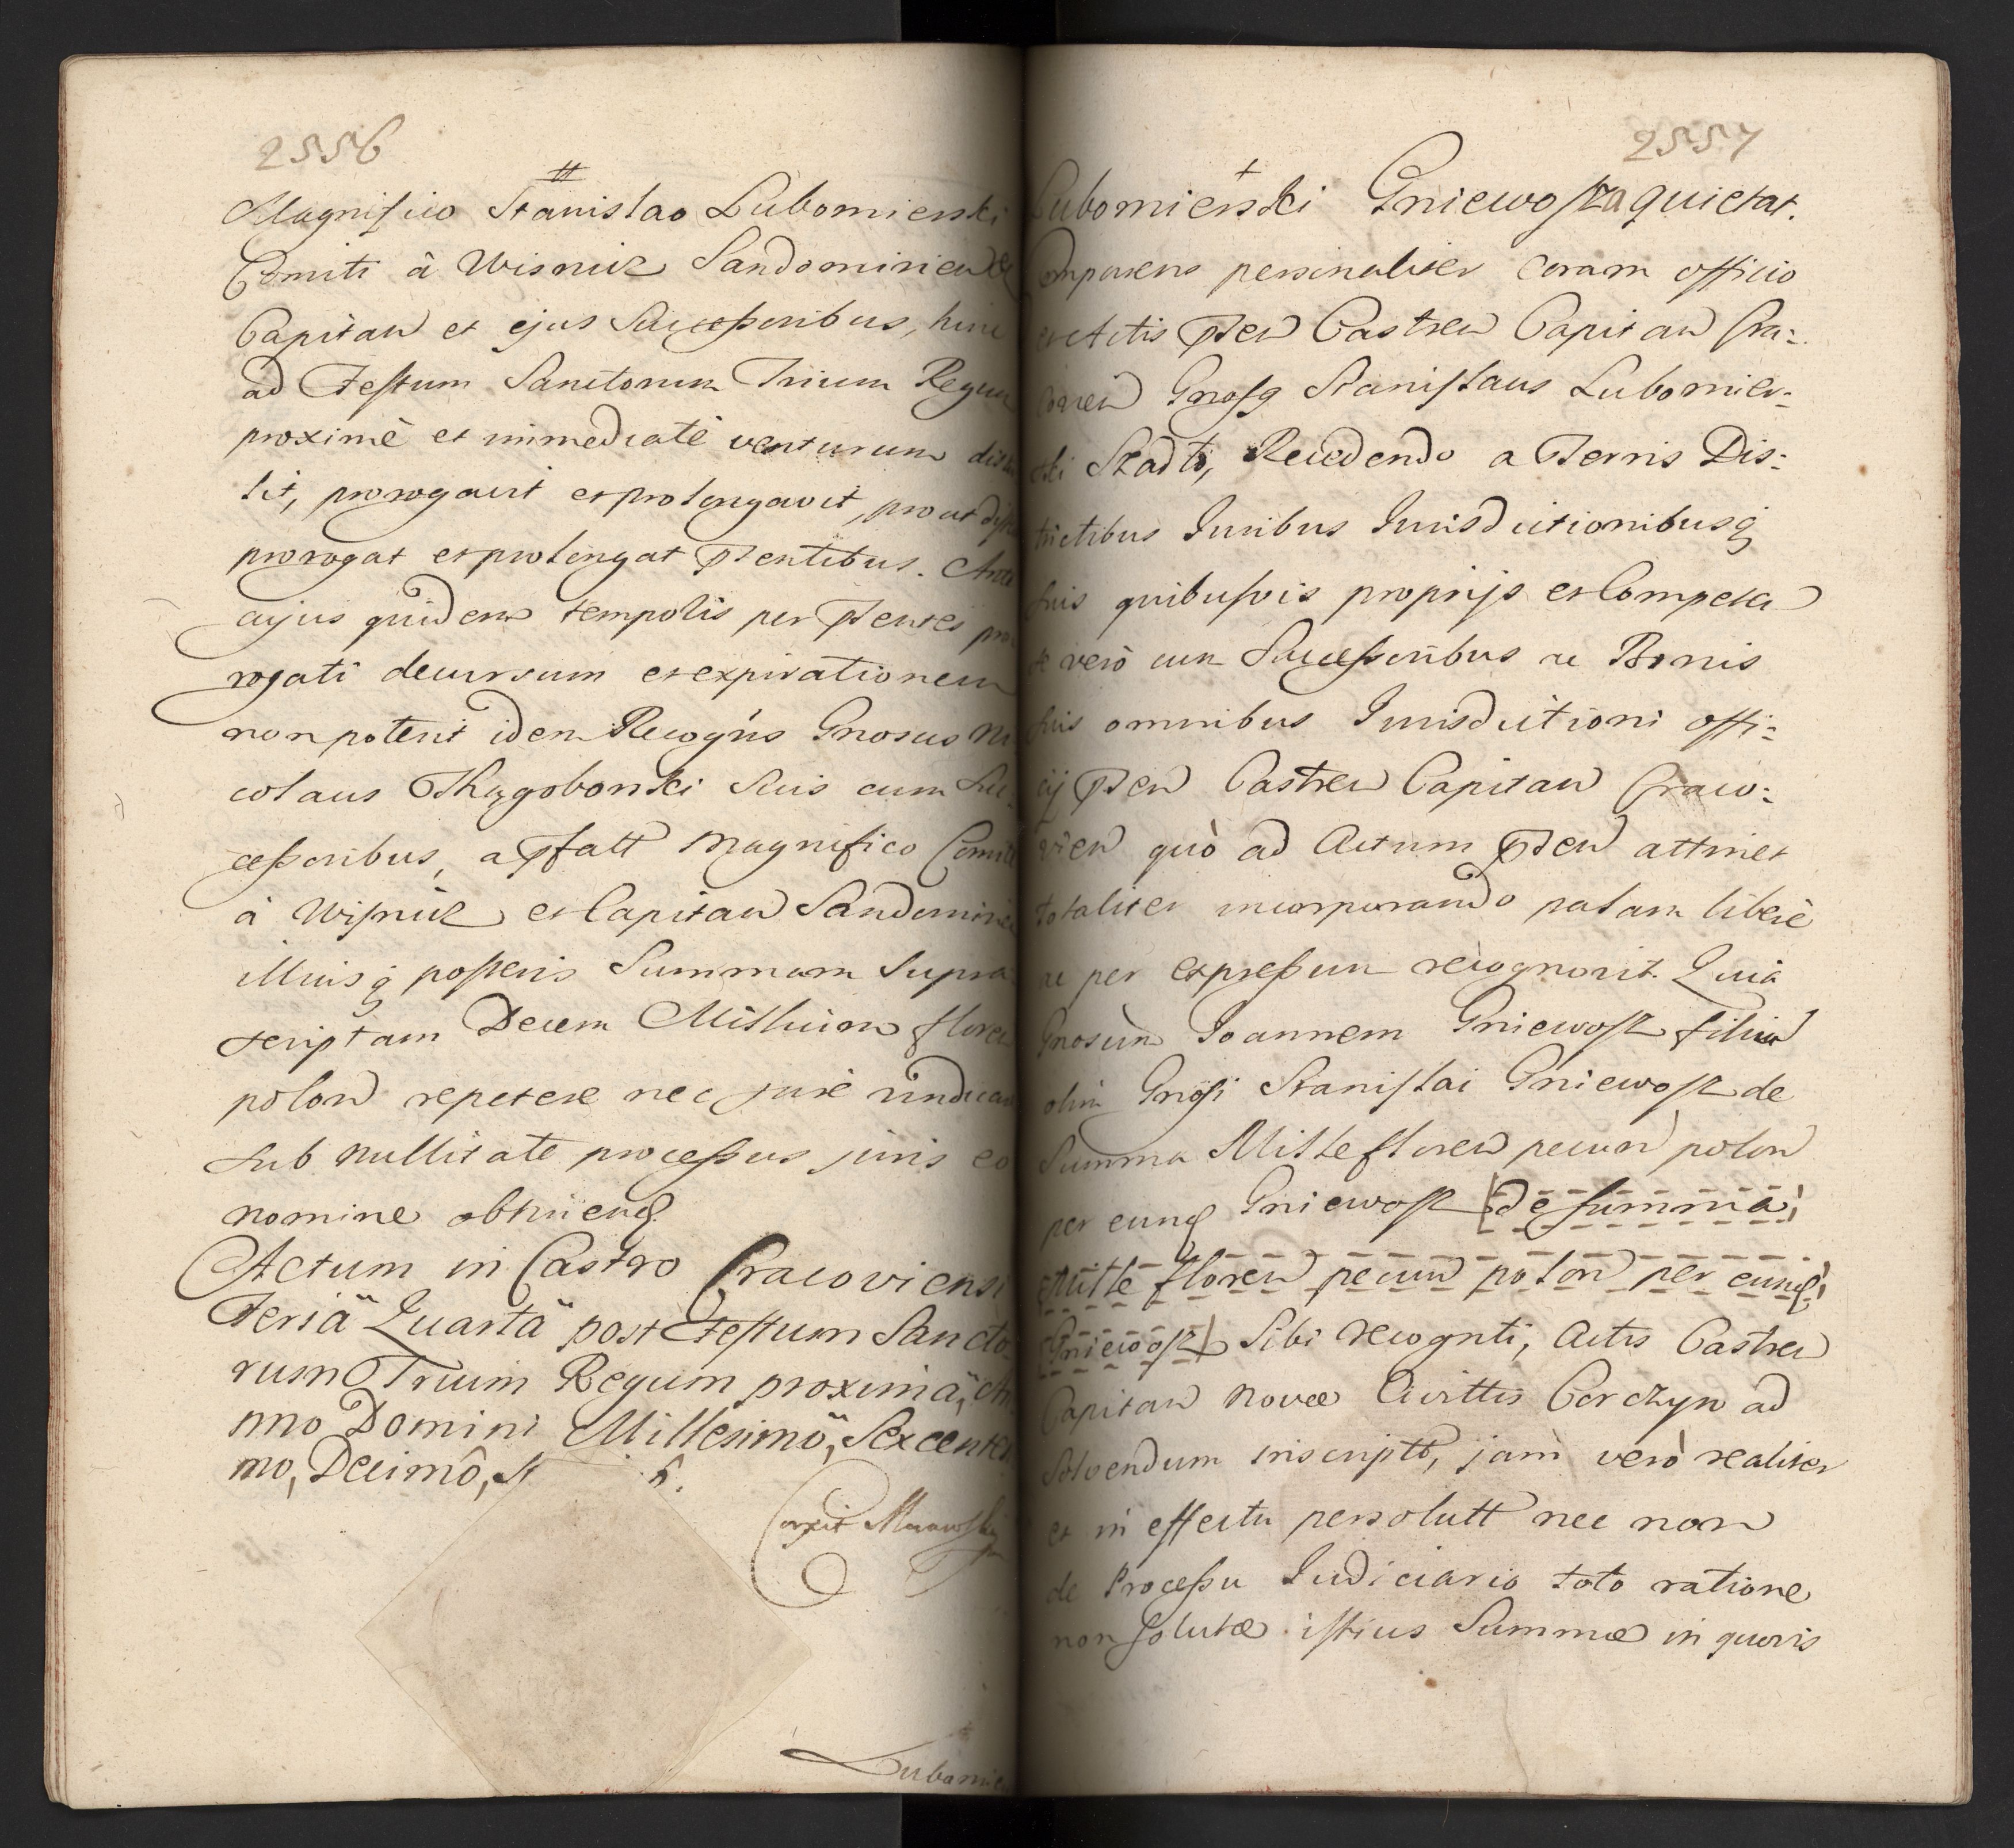 2556
Magnifico Stanislao Lubomierski
Comiti à Wisnicz Sandomirien
Capitan et ejus Successoribus, hinc
ad Festum Sanctorum Trium Regum
proximè et immediatè venturum
lit, prorogavit et prolongavit, prout
prorogat et prolongat Pntibus. Ante
cujus quidem temporis per Pntes pro
rogati decursum et expirationem
non poterit idem Recogns Gnosus Ni
colaus Przygobonski Suis cum Suc
cessoribus, a Pfatt Magnifico Comite
à Wisnicz et Capitan Sandomirien
illius posteris Summam Supra
scriptam Decem Millium floren
polon repetere nec jure
sub nullitate processus juris eo
nomine
Actum in Castro Cracoviensi
Feriä Quartä post Festum Sancto
rum Trium Regum proximä, An
nno Domini Millesimö, Sexcente
mo, Decimô, S 6.
Lubomier
2557
Lubomierski Gniewosza quietat.
Comparens personaliter Coram officio
et Actis Pnten Castren Capitan Cra:
covien Gnosg Stanislaus Lubomier:
ski Recedendo a Terris Dis:
trictibus Juribus Jurisdictionibusq
suis quibusvis proprijs et Competen
se verò cum Successoribus ac Bonis
suis omnibus Jurisdictioni offi:
cij Pnten Castren Capitan Craco:
vien quò ad Actum Pnten attinet
totaliter incorporando palam liberè
ac per expressum recognovit. Quia
Gnosum Joannem Gniewosz filium
olim Gnosi Stanislai Gniewosz de
Summa Mille floren pecun polon
per eund Gniewosz [de summa
Mille floren pecun polon per eund
Gniewosz] Sibi recognti, Actis Castren
Capitan Novae Civittis Corczyn ad
solvendum inscriptt, jam verò realiter
et in effectu persolutt nec non
de Processu Judiciario toto ratione
non solutae istius Summae in quovis